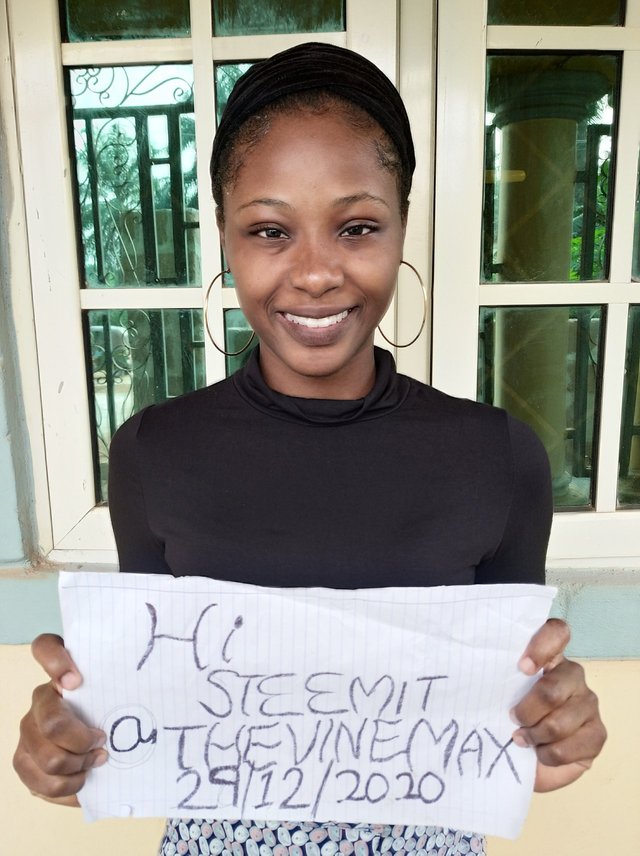 Hi
STEEMIT
@THEVINEMAX
29/12/2020